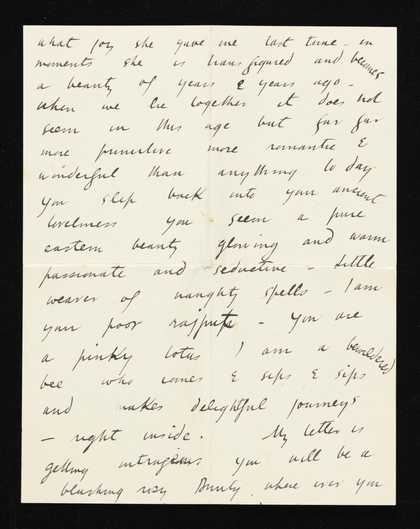 what joy she gave me last time - in
moments she is transfigured and becomes
a beauty of years & years ago -
when we lie together it does not
seem in this age but far far
more primitive more romantic &
wonderful than anything to day
you slip back into your ancient
loveliness you seem a pure
eastern beauty glowing and warm
passionate and seductive - Little
weaver of naughty spells - I am
your poor rajput - you are
a pinky lotus I am a bewildered
bee who comes & sips & sips
and makes delightful journeys
- right inside. My letter is
getting outrageous you will be a
blushing rosy where ever you